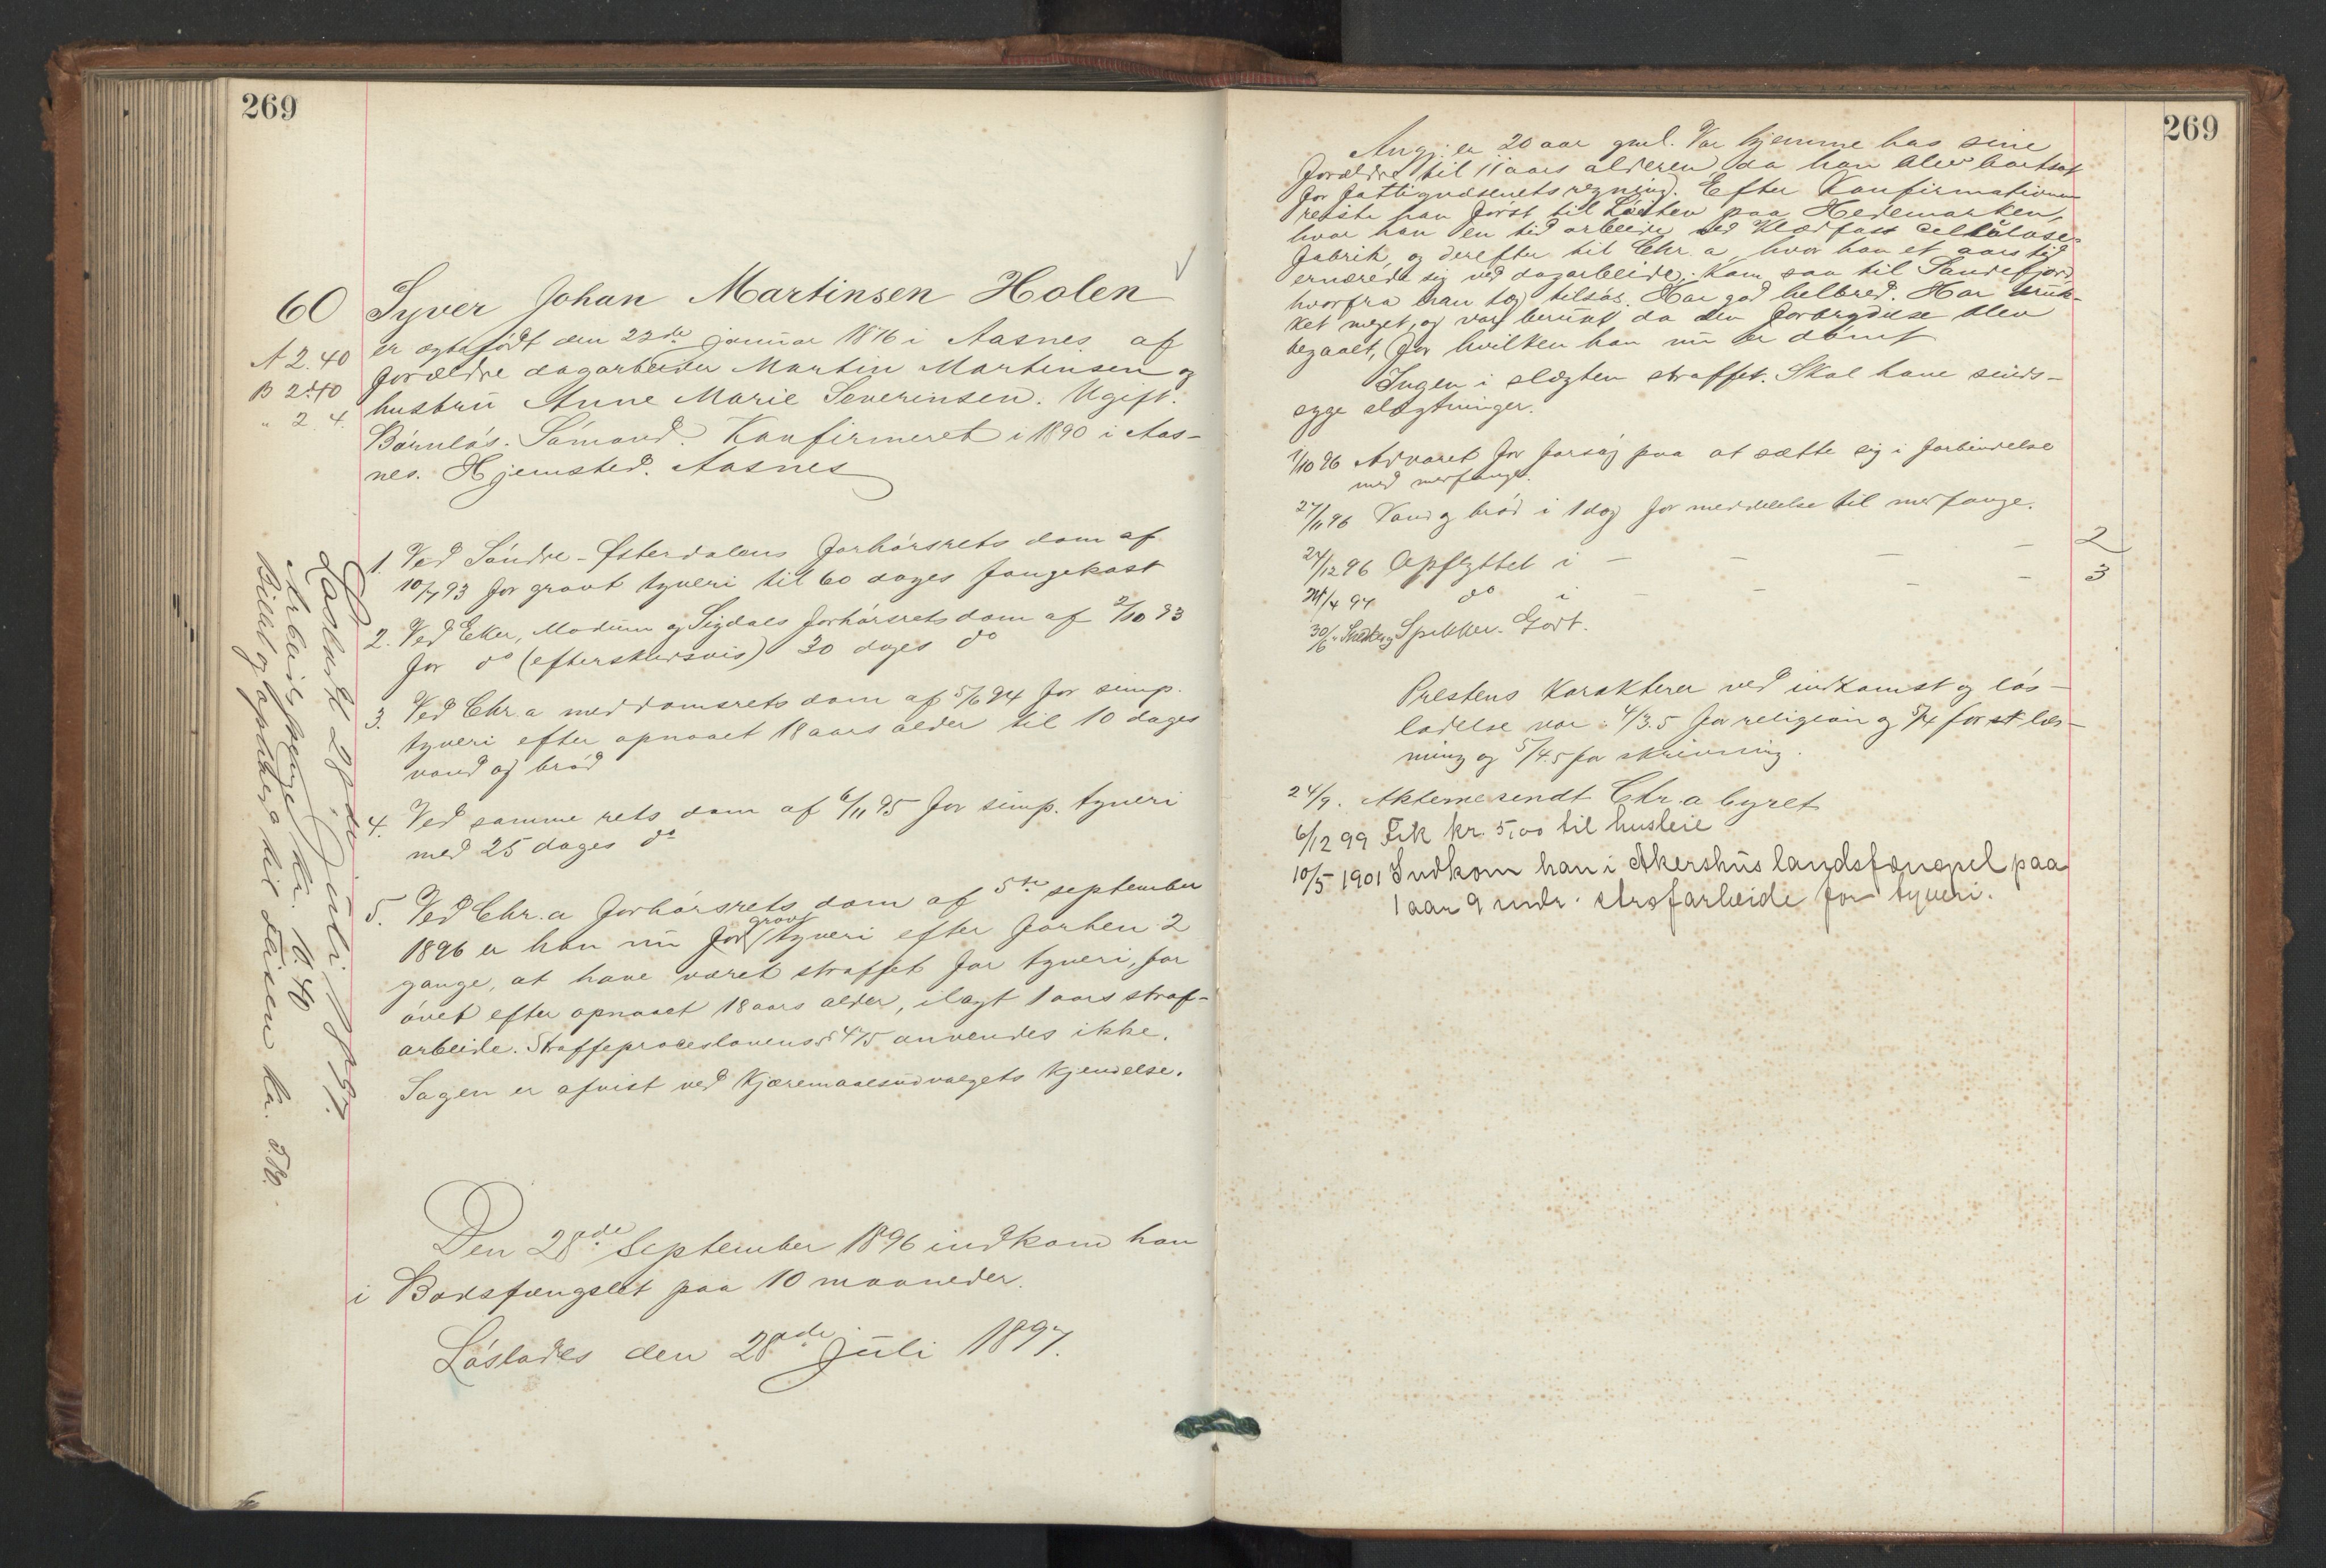 269
60 Syver Johan Martinsen Holen
A 2.40
B 2.40
" 2. 4.
er ægtefødt den 22de januar 1876 i Aasnes af
forældre dagarbeider Martin Martinsen og
hustru Anne Marie Severinsen. Ugift.
Barnløs. Sømand. Konfirmeret i 1890 i Aas-
nes. Hjemsted. Aasnes
1. Ved Søndre-Østerdalens forhørsrets dom af
10/7 93 for grovt tyveri til 60 dages fangekost
2. Ved Eker, Modum og Sigdals forhørsrets dom af 2/10 93
for do (efterskudsvis) 30 dages do
3. Ved Chr.a meddomsrets dom af 5/6 94 for simp.
tyveri efter opnaaet 18 aars alder til 10 dages
vand og brød
4. Ved samme rets dom af 6/11 95 for simp. tyveri
med 25 dages do
5. Ved Chr.a forhørsrets dom af 5te september
1896 er han nu for grovt tyveri efter forhen 2
gange, at have været straffet for tyveri, for
øvet efter opnaaet 18 aars alder, ilagt 1 aars straf-
arbeide. Straffeproceslovens § 475 anvendes ikke.
Sagen er afvist ved Kjæremaalsudvalgets Kjendelse.
Den 28de September 1896 indkom han
i Bodsfængslet paa 10 maaneder.
Løslades den 28de Juli 1897.
Løsladt 28de Juli 1897.
Arbeidspenge kr. 10.40
Billet og ophold til Reisen kr.
269
Angj. er 20 aar gml. Var hjemme hos sine
forældre til 11 aars alderen, da han blev bortsat
for fattigvæsenets regning. Efter Konfirmationen
reiste han først til Løiten paa Hedemarken,
hvor han en tid arbeide ved Klæfoss cellulose-
fabrik, og derefter til Chr.a hvor han et aars tid
ernærede sig ved dagarbeide; kom saa til Sandefjord
hvorfra han tog tilsøs. Har god helbred. Har druk-
ket meget, og var beruset da den forbrydelse blev
begaaet, for hvilken han nu er dømt
Ingen i slægten straffet. Skal have sinds-
syge slægtninger.
1/10 96 Advaret for forsøg paa at sætte sig i forbindelse
med medfange.
27/11 96 Vand og brød i 1 dag for meddelelse til medfange.
24/12 96 Opflyttet i — — — — 2
24/4 97 do i — — — — 3
30/6 " Snedker og Spikker. Godt.
Prestens Karakterer ved indkomst og løs-
ladelse var: 4/3.5 for religion og 5/4 for læs-
ning og 5/4.5 for skrivning.
24/9. Akterne sendt Chr.a byret
6/12 99 Fik kr. 5,00 til husleie
10/5 1901 Indkom han i Akershus landsfængsel paa
1 aar 9 mdr. strafarbeide for tyveri.